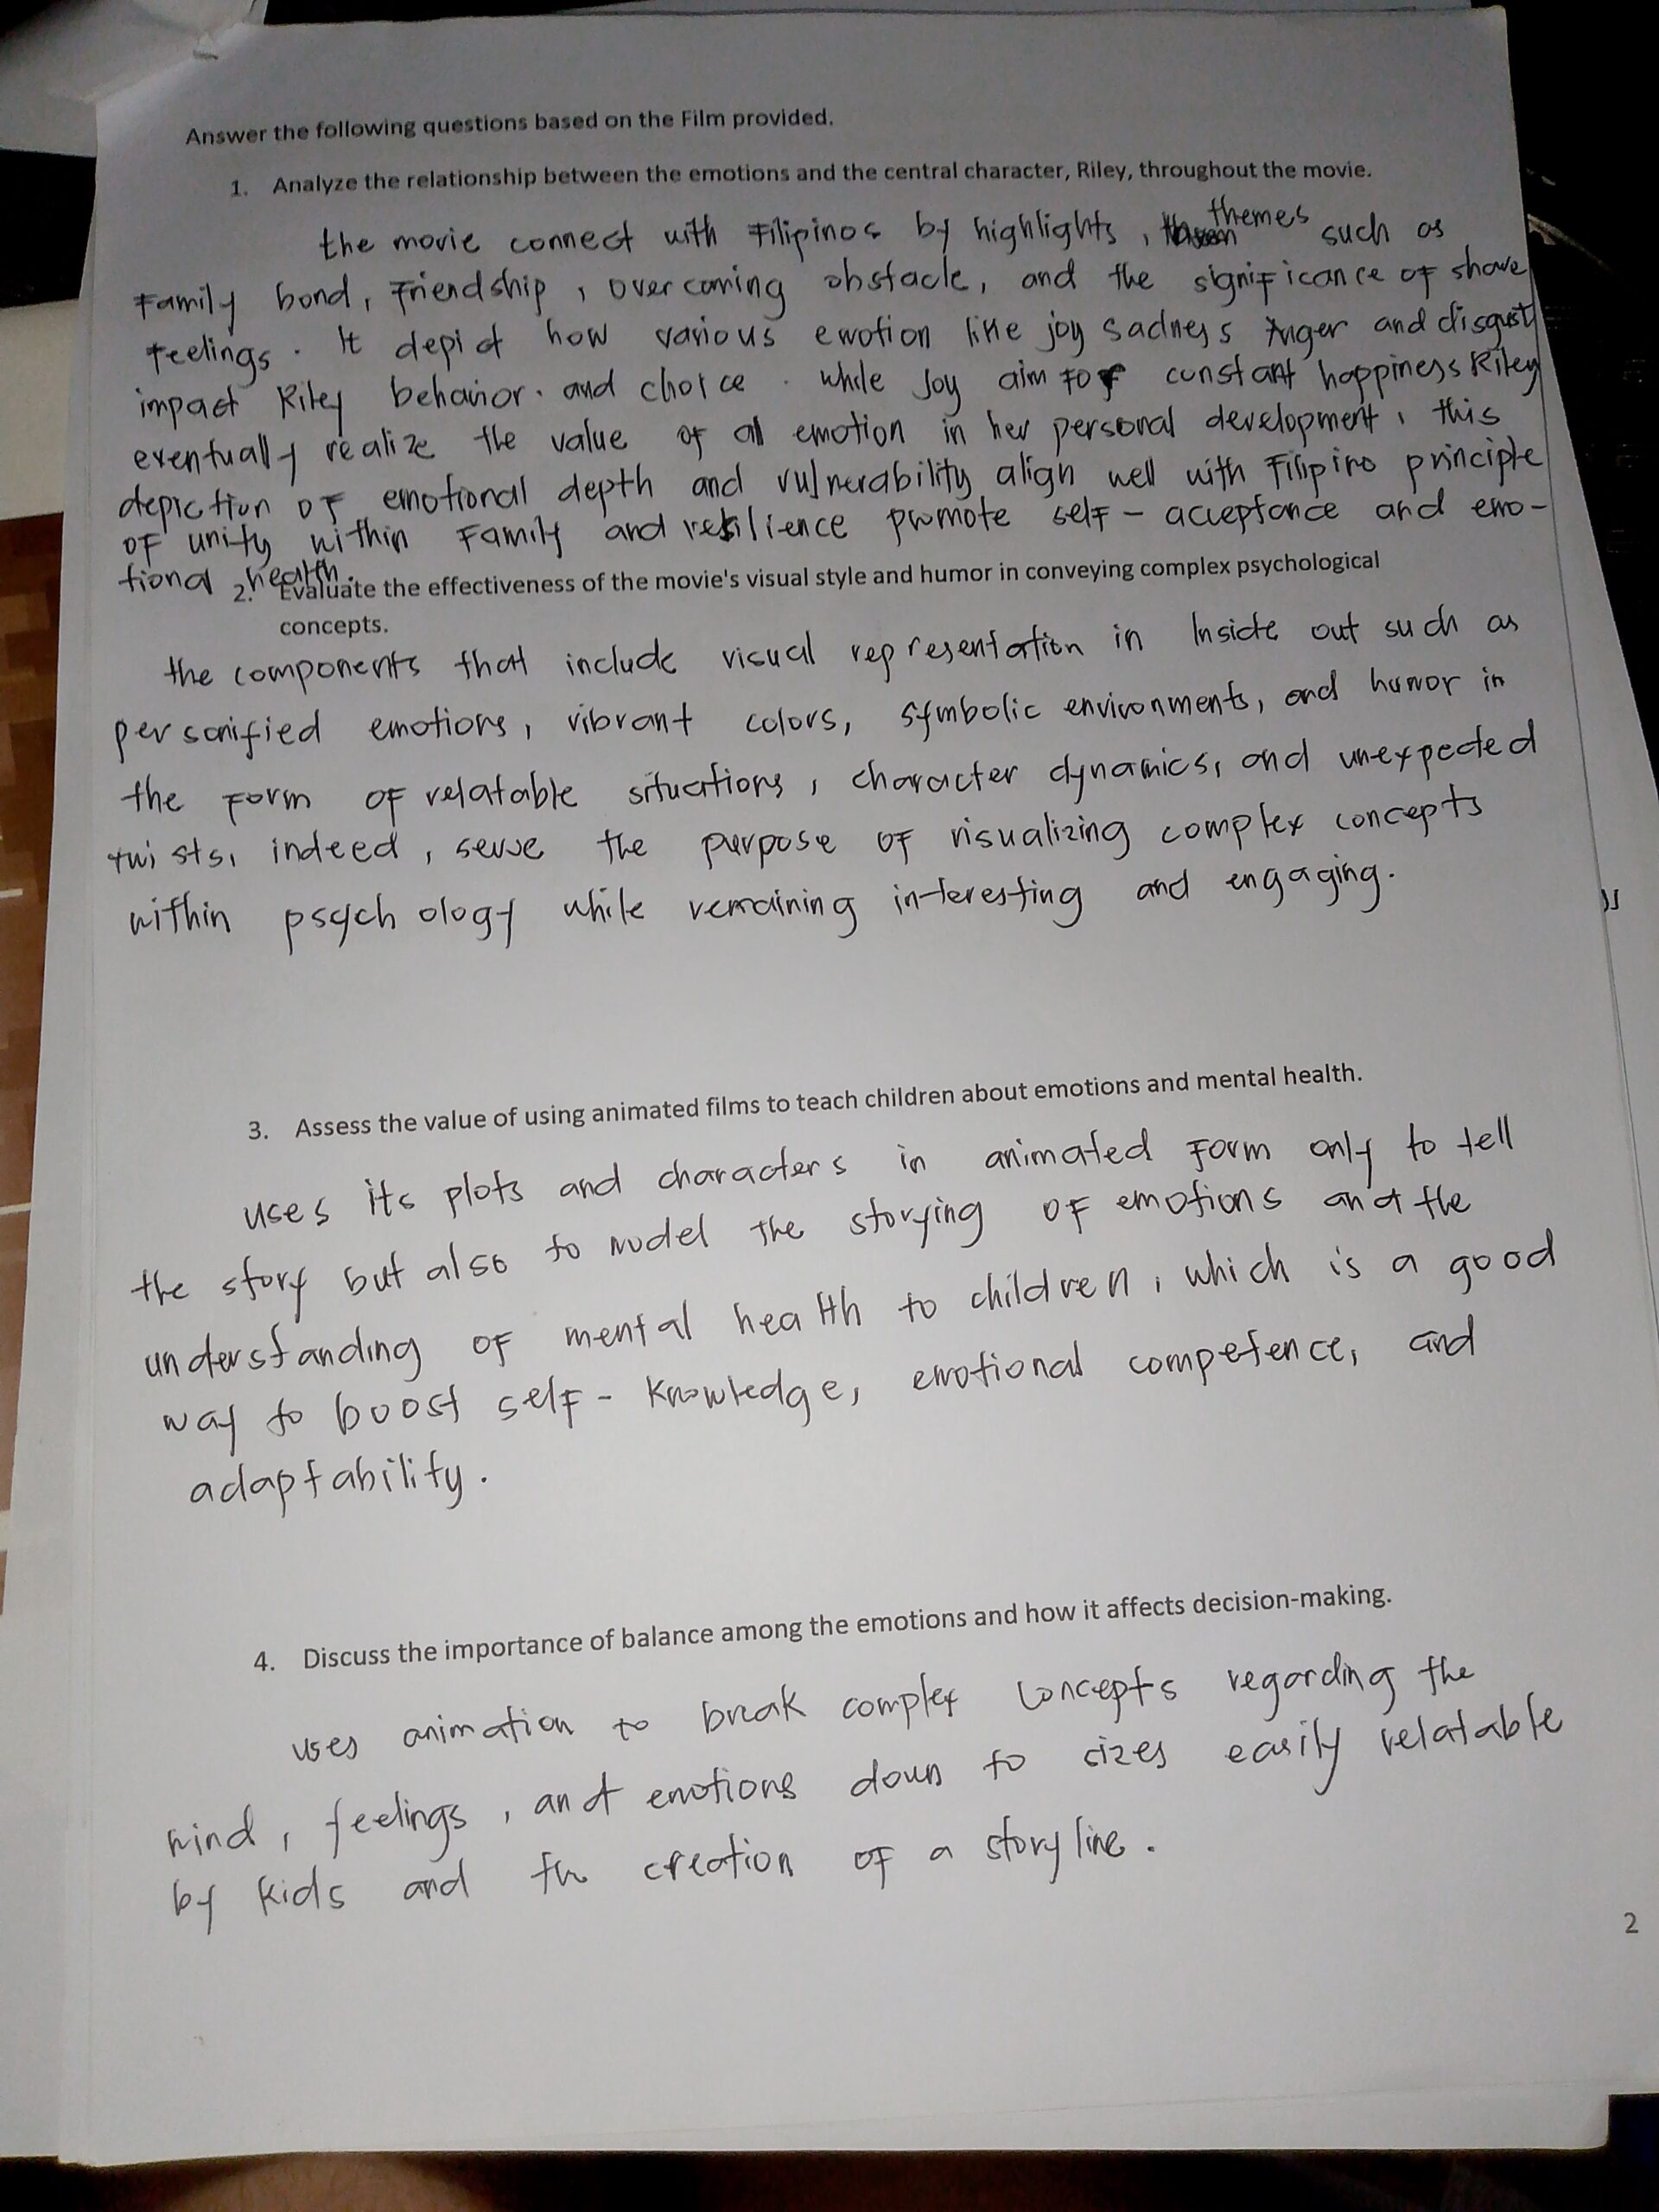 Answer the following questions based on the Film provided.
1. Analyze the relationship between the emotions and the central character, Riley, throughout the movie.
the movie connect with Filipinos by highlights, themes such as
Family bond, Friendship, overcoming obstacle, and the significance of share
feelings. It depict how various emotion like joy sadness Anger and disgust
impact Riley behavior. and choice. while Joy aim for constant happiness Riley
eventually realize the value of all emotion in her personal development, this
depiction of emotional depth and vulnerability align well with Filipino principle
of unity within Family and resilience promote self-acceptance and emo-
tional health.
2. Evaluate the effectiveness of the movie's visual style and humor in conveying complex psychological
concepts.
the components that include visual representation in Inside out such as
personified emotions, vibrant colors, symbolic environments, and humor in
the form of relatable situations, character dynamics, and unexpected
twists, indeed, serve the purpose of visualizing complex concepts
within psychology while remaining interesting and engaging.
3. Assess the value of using animated films to teach children about emotions and mental health.
uses its plots and characters in animated form only to tell
the story but also to model the storying of emotions and the
understanding of mental health to children, which is a good
way to boost self-knowledge, emotional competence, and
adaptability.
4. Discuss the importance of balance among the emotions and how it affects decision-making.
uses animation to break complex concepts regarding the
mind, feelings, and emotions down to sizes easily relatable
by kids and the creation of a story line.
2